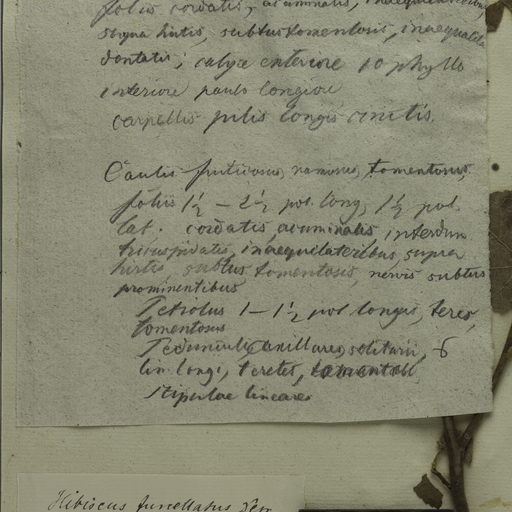 foliis cordatis, acuminatis,
supra hirtis, subtus tomentosis, inaequaliter
dentatis; calyce exteriore 10 phyllo
interiore paulo longiore
carpellis pilis longis cinctis.
Caulis fruticosus, ramosus, tomentosus,
foliis 1½ - 2½ pol. long, 1½ pol.
lat. cordatis, acuminatis interdum
tricuspidatis, inaequilateribus, supra
hirtis, subtus tomentosis, nervis subtus
prominentibus
Petiolus 1 - 1½ pol longus, teres,
tomentosus
Pedunculi axillares, solitarii, 6
lin longi, teretes,
Stipulae lineares
Hibiscus furcellatus